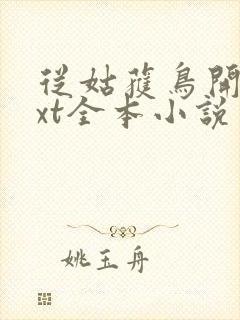 從姑獲鳥開
xt全本小說
姚玉舟